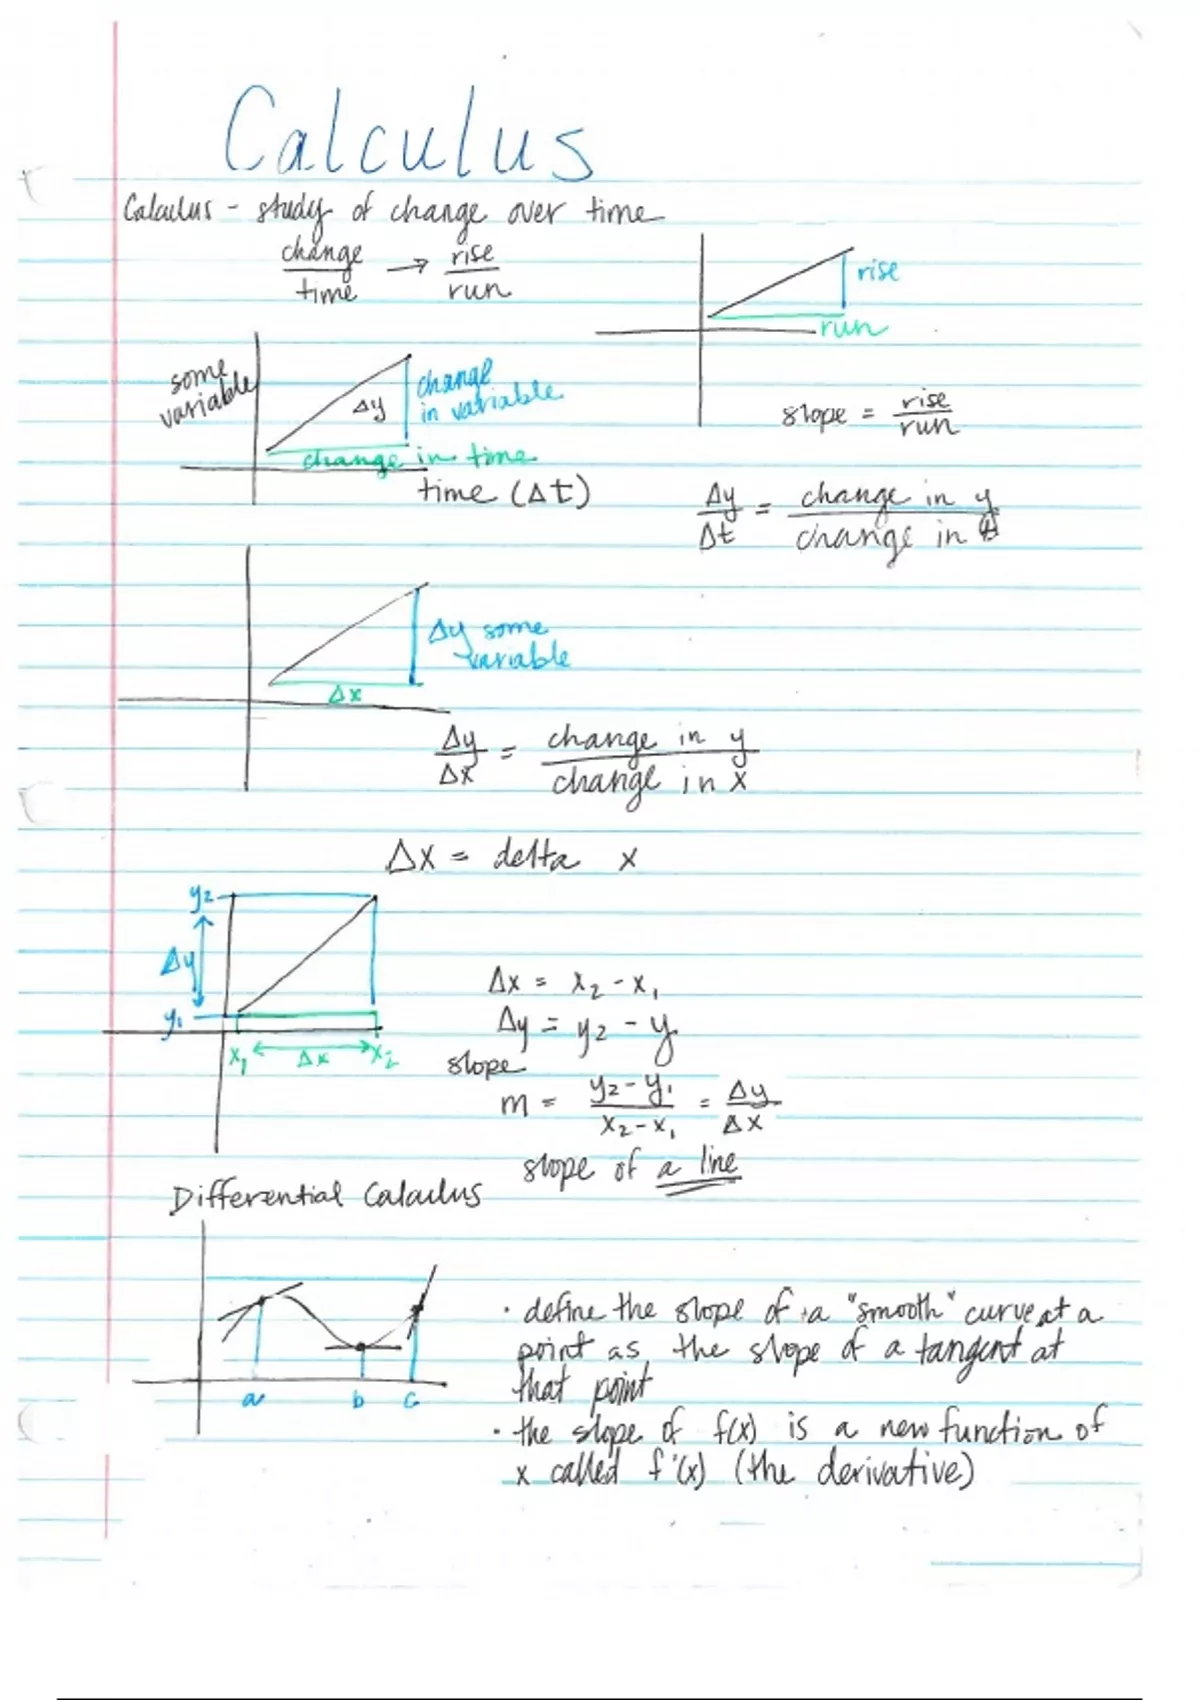 Calculus
Calculus - study of change over time
change/time → rise/run
rise
run
slope = rise/run
some
variable
Δy
change
in variable
change in time
time (Δt)
Δy/Δt = change in y/change in t
Δy some
variable
Δx
Δy/Δx = change in y/change in x
Δx = delta x
y₂
Δy
y₁
x₁ Δx x₂
Δx = x₂ - x₁
Δy = y₂ - y
slope
m = y₂-y₁/x₂-x₁ = Δy/Δx
slope of a line
Differential Calculus
a b c
· define the slope of a "smooth" curve at a
point as the slope of a tangent at
that point
· the slope of f(x) is a new function of
x called f'(x) (the derivative)